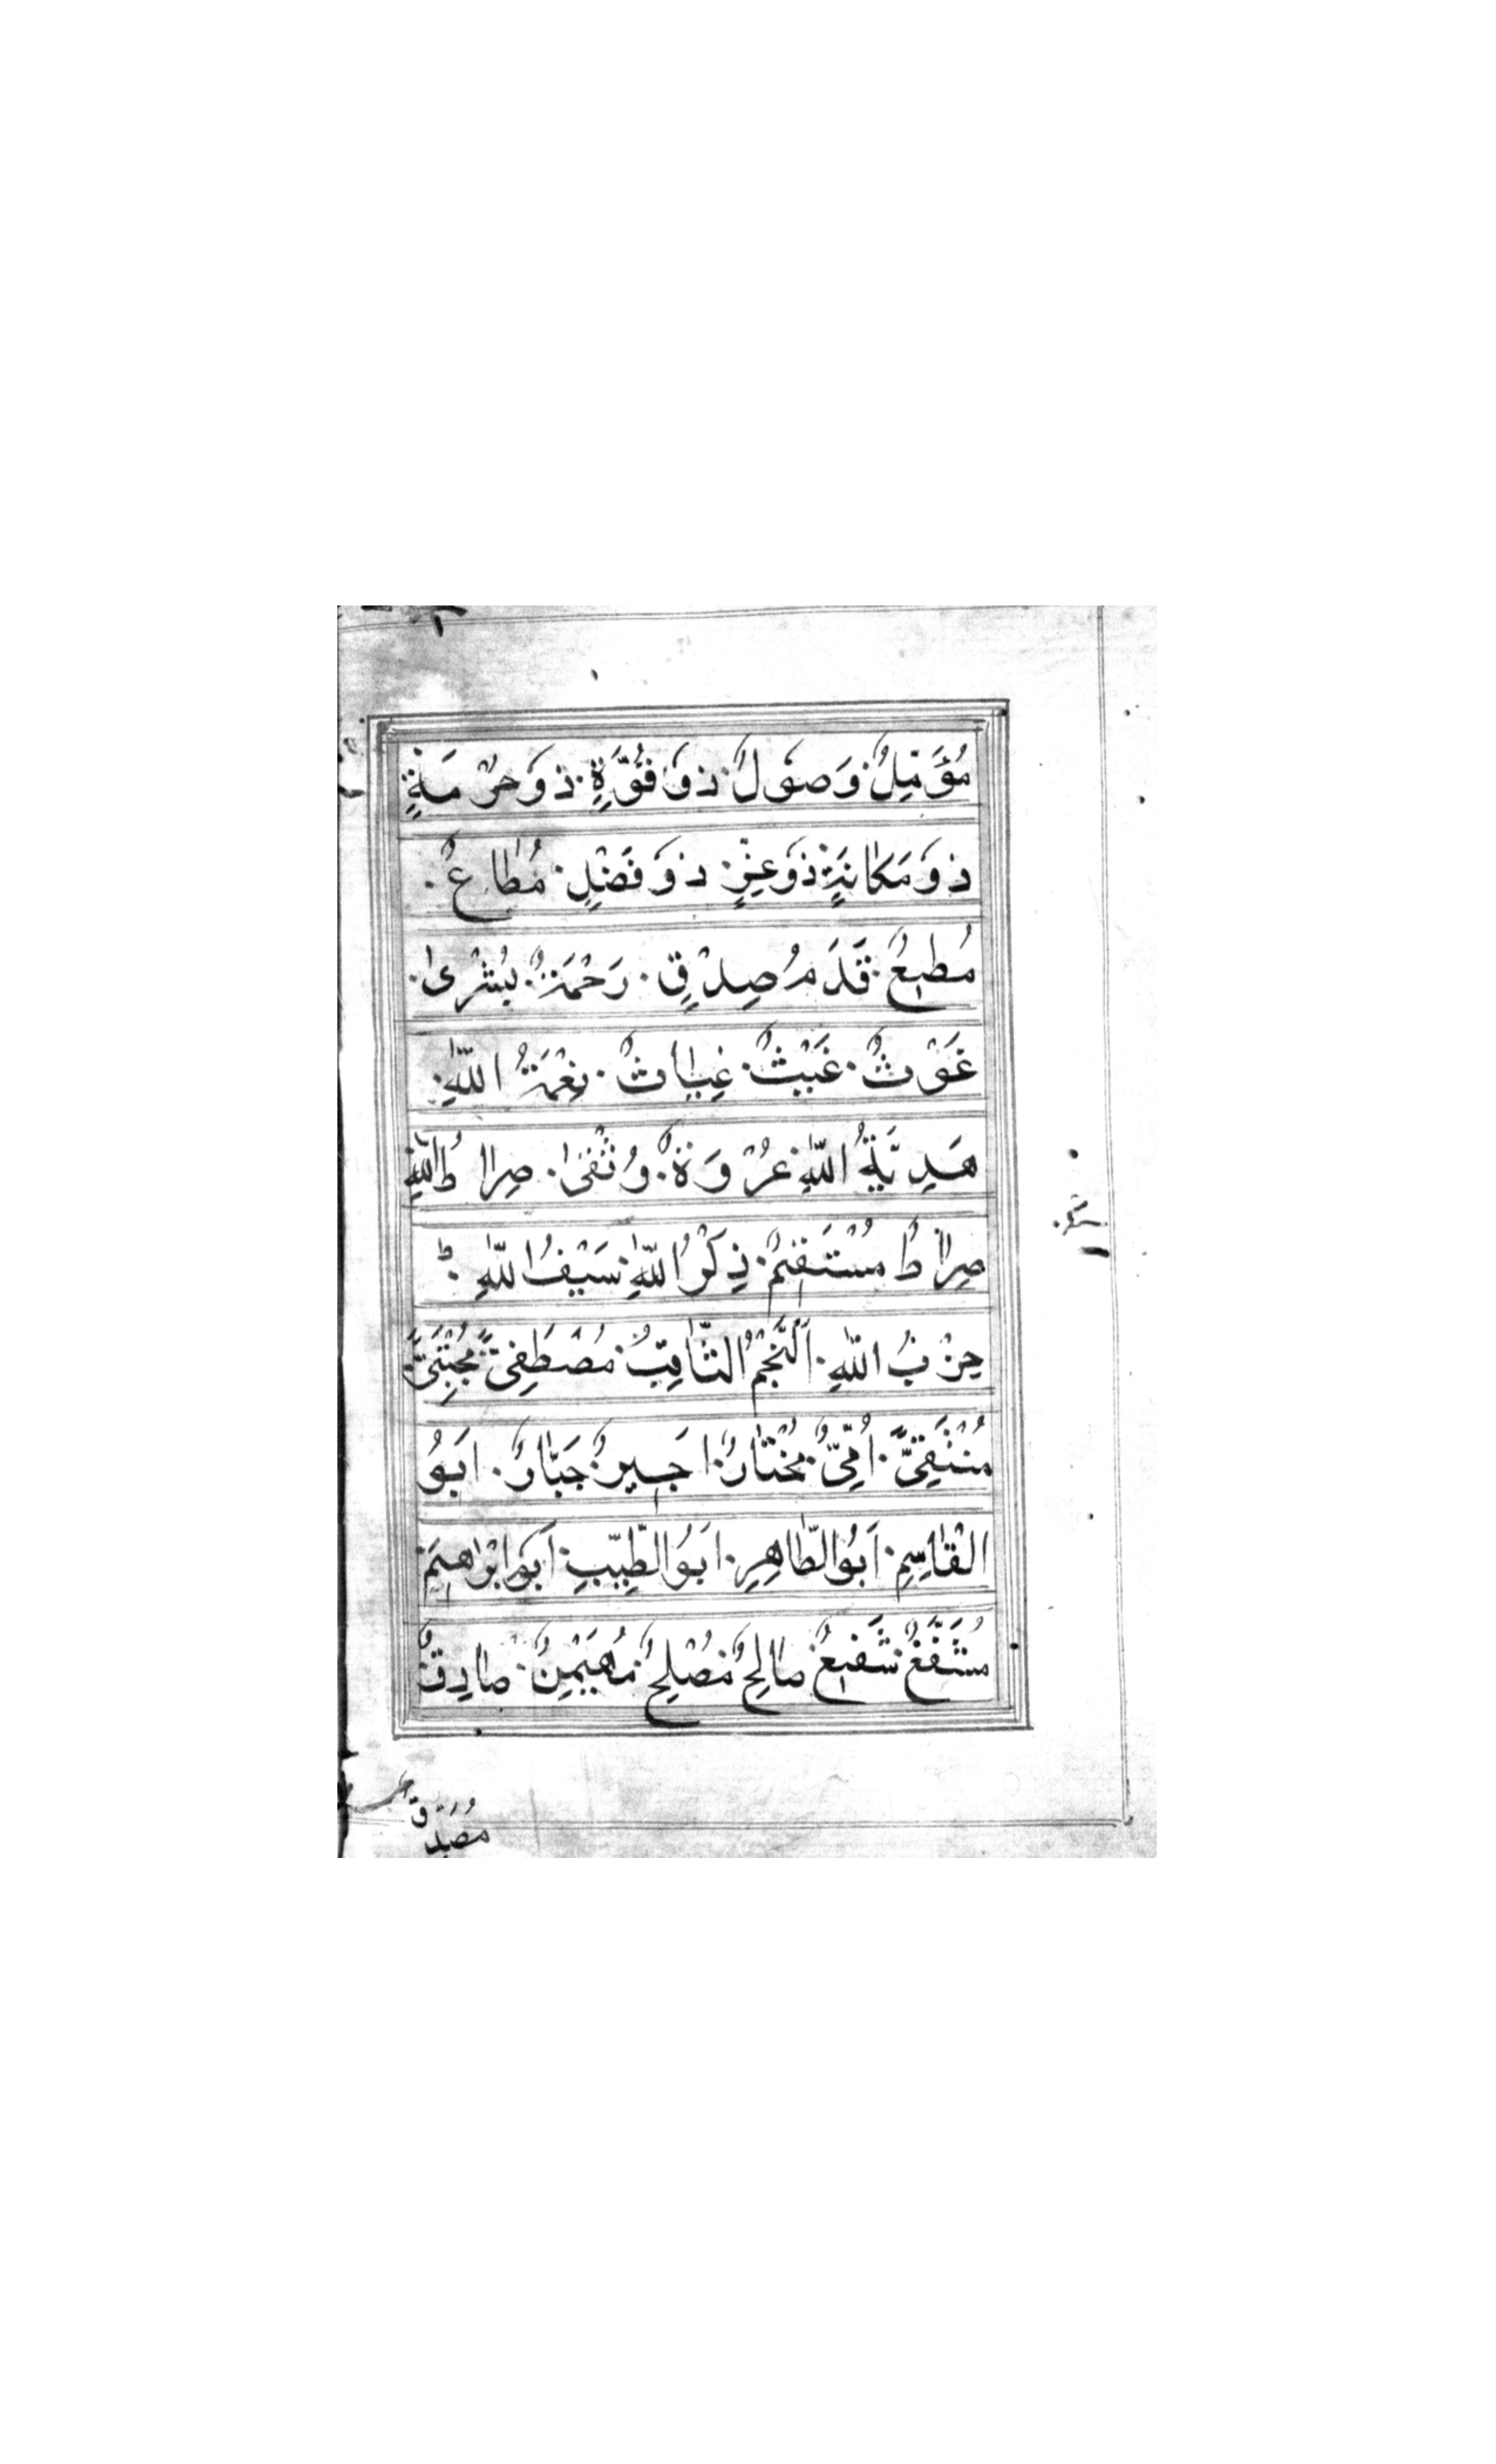 مُؤَمِّلٌ وَصُوْلٌ ذُوْ قُوَّةٍ ذُوْ حُرْمَةٍ
ذُوْ مَكَانَةٍ ذُوْ عِزٍّ ذُوْ فَضْلٍ مُطَاعٌ
مُطِيعٌ قَدَمُ صِدْقٍ رَحْمَةٌ بُشْرٰى
غَوْثٌ غَيْثٌ غِيَاثٌ نِعْمَةُ اللّٰهِ
هَدِيَّةُ اللّٰهِ عُرْوَةٌ وُثْقٰى صِرَاطُ اللّٰهِ
صِرَاطٌ مُسْتَقِيْمٌ ذِكْرُ اللّٰهِ سَيْفُ اللّٰهِ
حِزْبُ اللّٰهِ اَلنَّجْمُ الثَّاقِبُ مُصْطَفًى مُجْتَبًى
مُنْتَقًى اُمِّيٌّ مُخْتَارٌ اَجِيرٌ جَبَّارٌ اَبُو
الْقَاسِمِ اَبُو الطَّاهِرِ اَبُو الطَّيِّبِ اَبُو اِبْرَاهِيْمَ
مُشَفَّعٌ شَفِيْعٌ صَالِحٌ مُصْلِحٌ مُهَيْمِنٌ صَادِقٌ
مُصَدِّقٌ